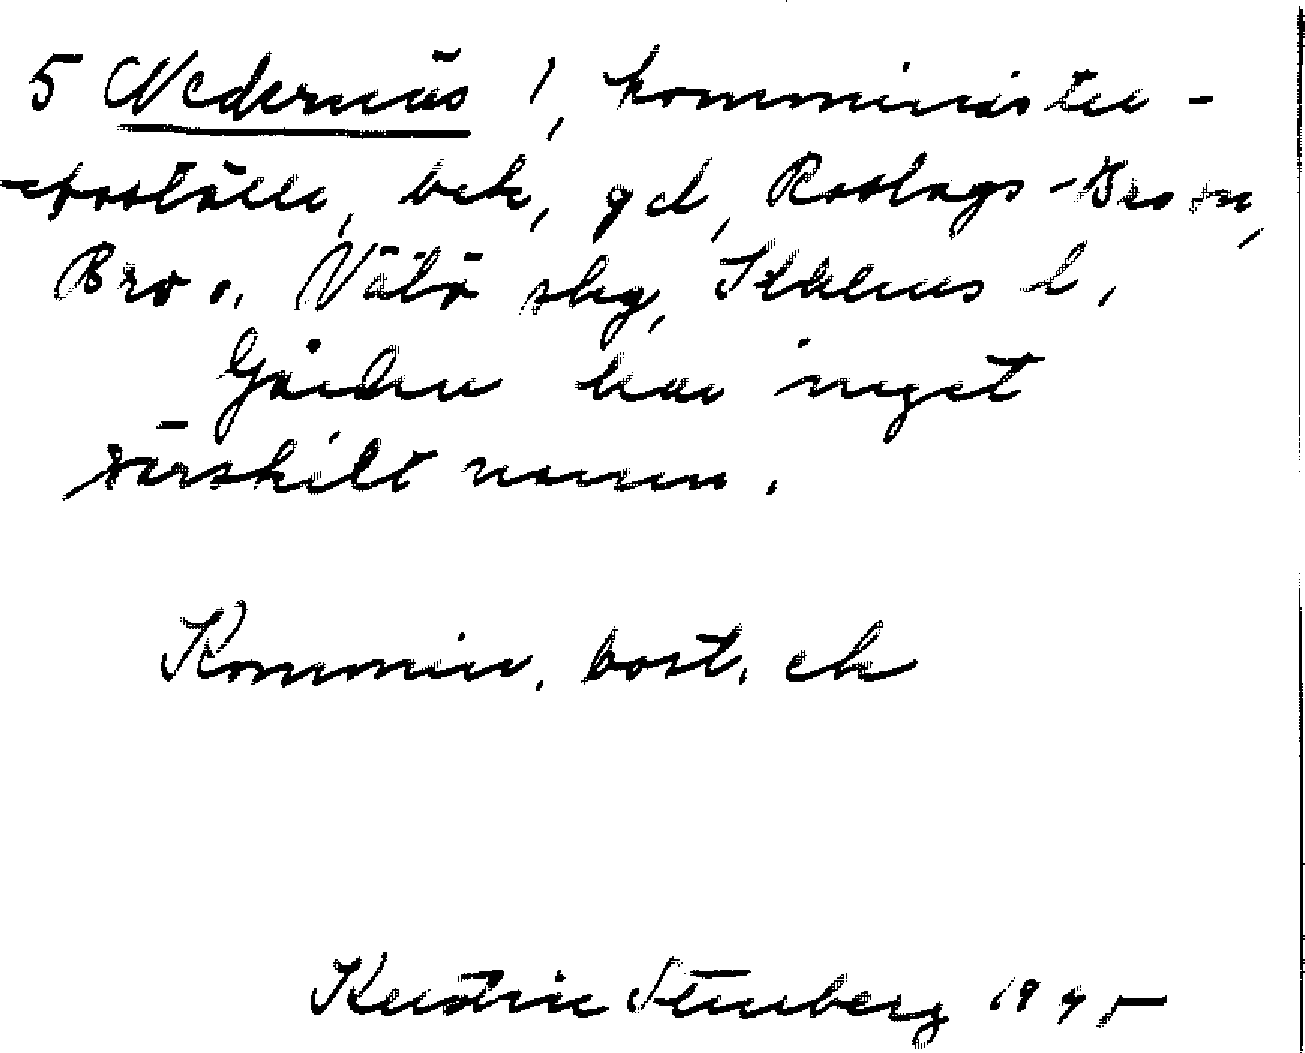 5 Nedernäs 1, komminister-
boställe, bek, gd, Roslags-Bro sn,
Bro o. Vätö skg, Sthlms l.
Gården har inget
särskilt namn.
Kommin. bost. ek
Kerstin Stenberg 1945